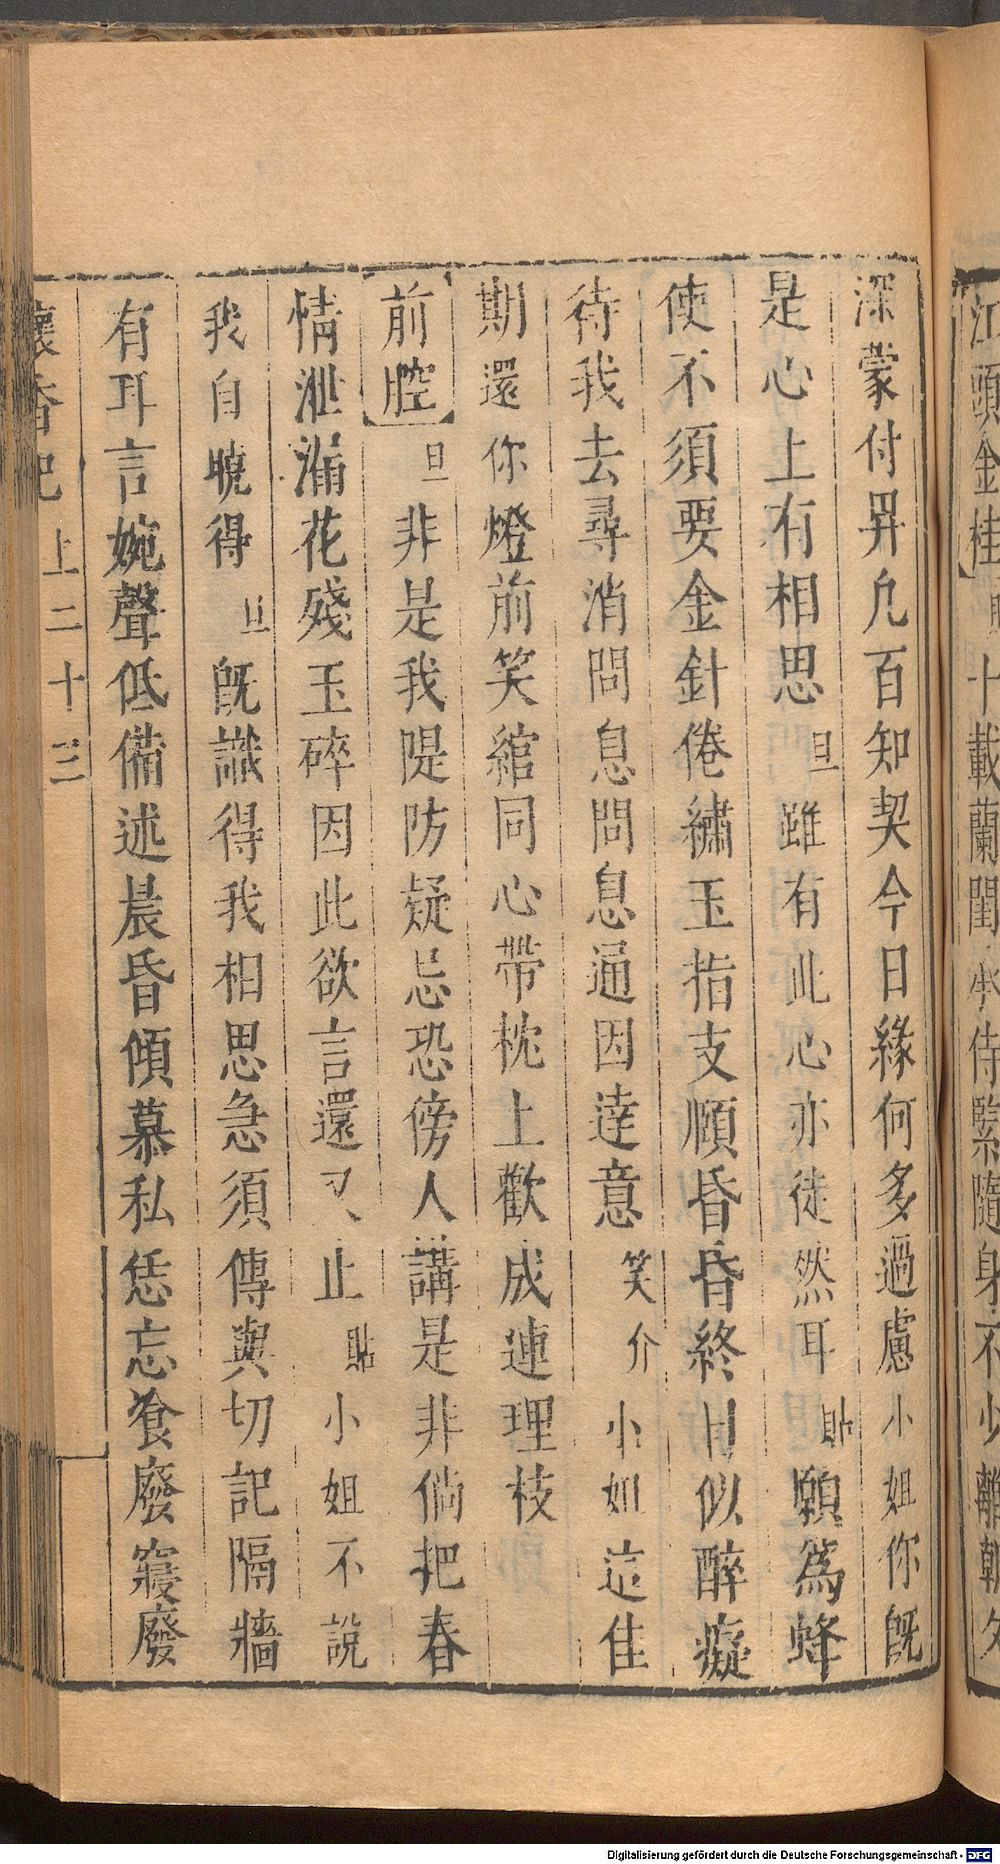 江頭金桂 十載蘭閨
侍緊隨身不少離朝夕
深蒙付畀凡百知契今日緣何多過慮小姐你旣
是心上有相思旦雖有此心亦徒然耳貼願爲蜂
使不須要金針倦繡玉指支頤昏昏終日似醉癡
待我去尋消問息問息通因達意笑介小姐這佳
期還你燈前笑綰同心帶枕上歡成連理枝
前腔旦非是我隄防疑忌恐傍人講是非倘把春
情泄漏花殘玉碎因此欲言還又止貼小姐不說
我自曉得旦旣識得我相思急須傳與切記隔牆
有耳言婉聲低備述晨昏傾慕私恁忘飡廢寢廢
懷香記 上二十三
Digitalisierung gefördert durch die Deutsche Forschungsgemeinschaft - DFG